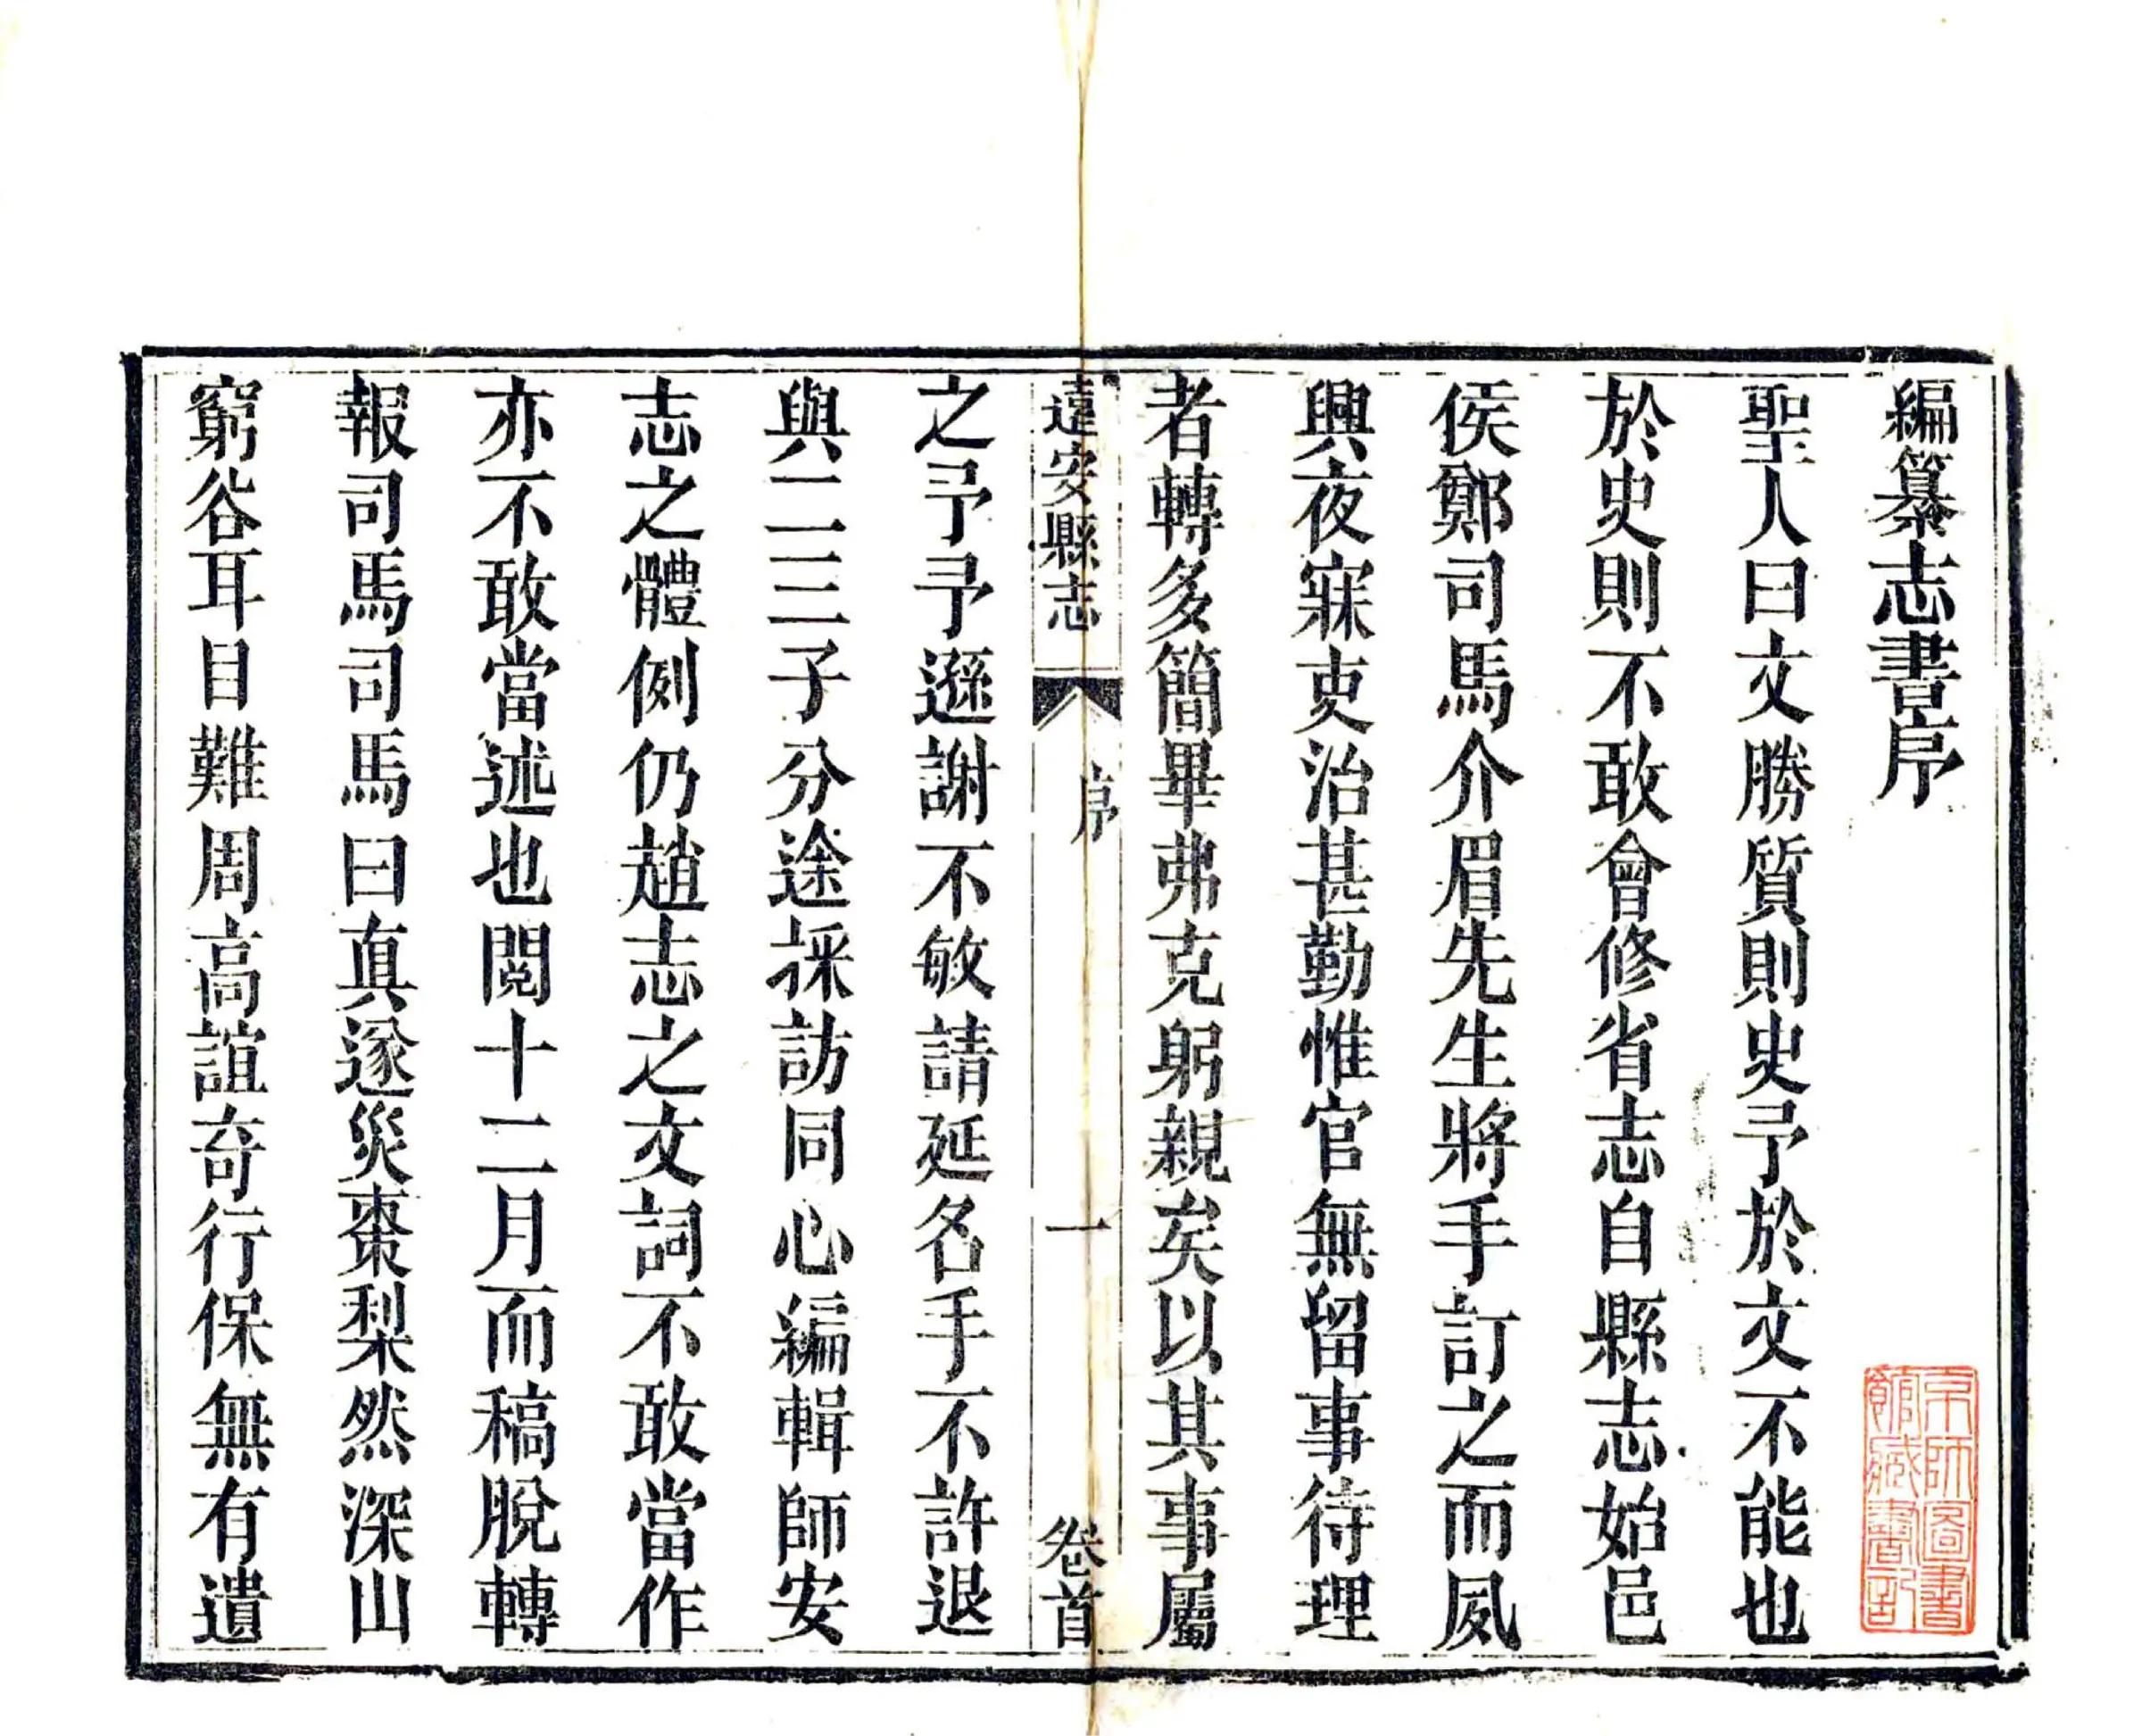 編纂志書序
聖人曰文勝質則史予於文不能也
於史則不敢會修省志自縣志始邑
侯鄭司馬介眉先生將手訂之而夙
興夜寐吏治甚勤惟官無留事待理
者轉多簡畢弗克躬親矣以其事屬
遠安縣志 序 一 卷首
之予予遜謝不敏請延名手不許退
與二三子分途採訪同心編輯師安
志之體例仍趙志之文詞不敢當作
亦不敢當述也閱十二月而稿脫轉
報司馬司馬曰真遂災棗梨然深山
窮谷耳目難周高誼奇行保無有遺
京師圖書
館藏書記